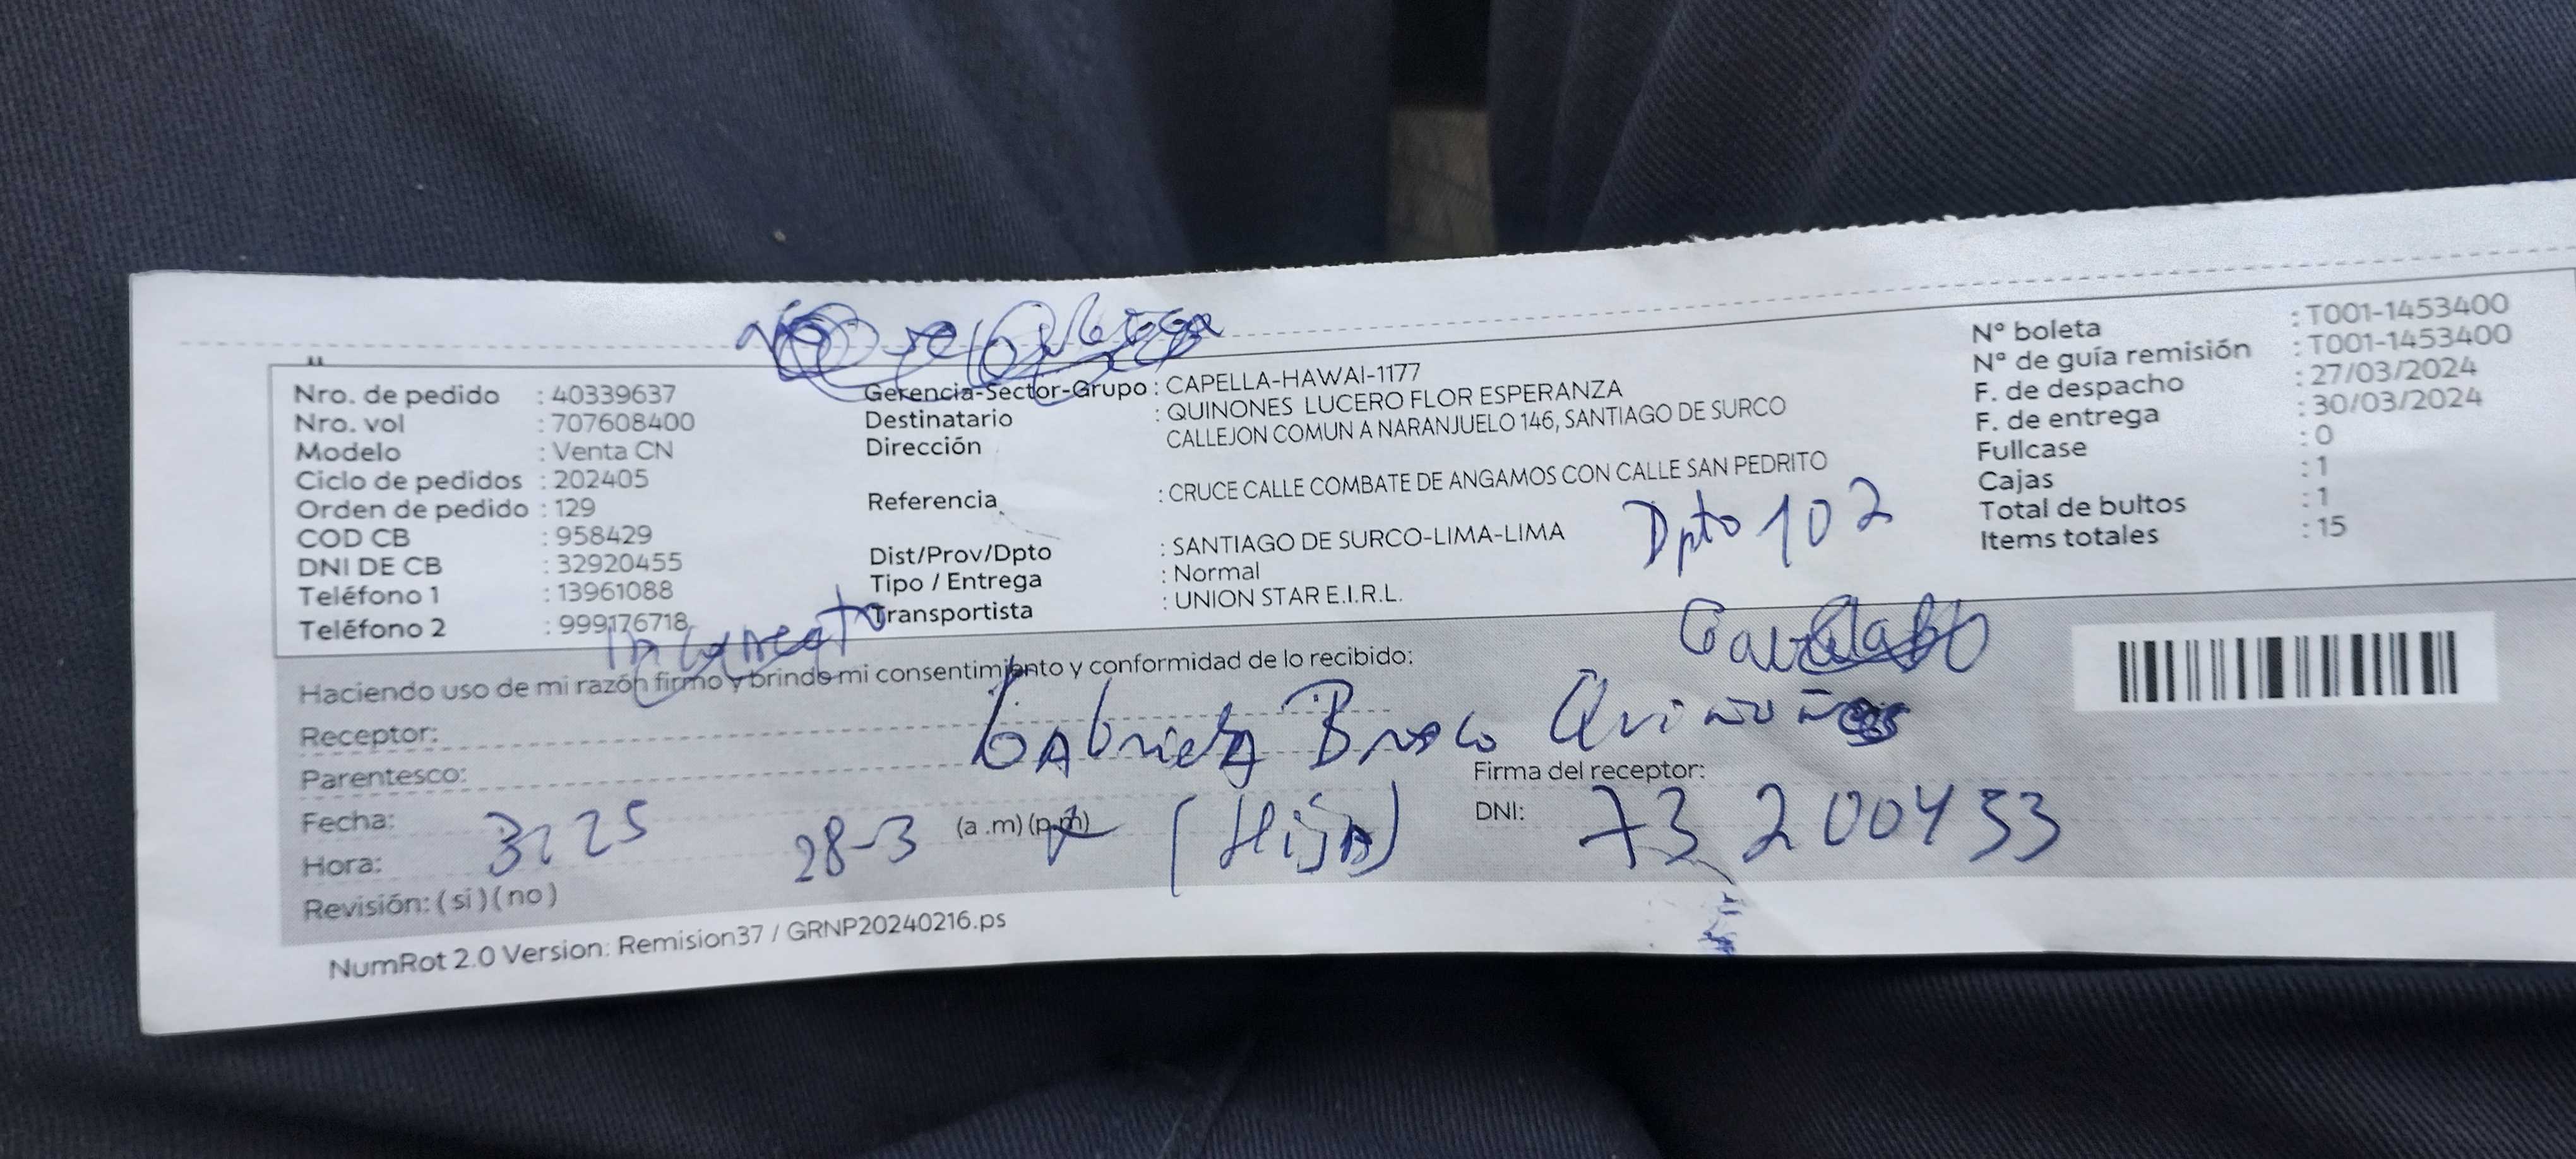 Nro. de pedido : 40339637
Nro. vol : 707608400
Modelo : Venta CN
Ciclo de pedidos : 202405
Orden de pedido : 129
COD CB : 958429
DNI DE CB : 32920455
Teléfono 1 : 13961088
Teléfono 2 : 999176718
Gerencia-Sector-Grupo : CAPELLA-HAWAI-1177
Destinatario : QUINONES LUCERO FLOR ESPERANZA
Dirección CALLEJON COMUN A NARANJUELO 146, SANTIAGO DE SURCO
Referencia : CRUCE CALLE COMBATE DE ANGAMOS CON CALLE SAN PEDRITO
Dpto 102
Dist/Prov/Dpto : SANTIAGO DE SURCO-LIMA-LIMA
Tipo / Entrega : Normal
Transportista : UNION STAR E.I.R.L.
N° boleta : T001-1453400
N° de guía remisión : T001-1453400
F. de despacho : 27/03/2024
F. de entrega : 30/03/2024
Fullcase : 0
Cajas : 1
Total de bultos : 1
Items totales : 15
Haciendo uso de mi razón firmo y brindo mi consentimiento y conformidad de lo recibido:
Receptor:
Gabriela Brasco Quinoñes
Parentesco:
Firma del receptor:
Fecha:
28-3 (a .m) (p.m) (Hija)
DNI: 73200453
Hora:
Revisión: ( si ) ( no )
NumRot 2.0 Version: Remision37 / GRNP20240216.ps